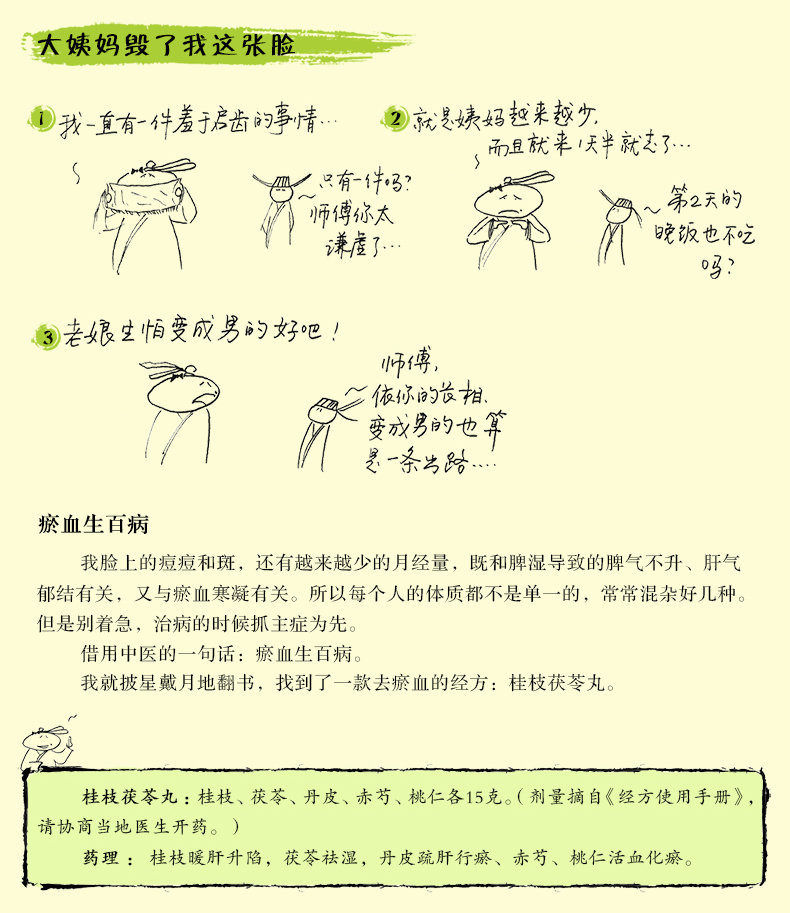 大姨妈毁了我这张脸
1 我一直有一件羞于启齿的事情…
只有一件吗?
师傅你太
谦虚了…
2 就是姨妈越来越少,
而且就来1天半就走了…
第2天的
晚饭也不吃
吗?
3 老娘生怕变成男的好吧!
师傅,
依你的长相,
变成男的也算
是一条出路….
瘀血生百病
我脸上的痘痘和斑，还有越来越少的月经量，既和脾湿导致的脾气不升、肝气
郁结有关，又与瘀血寒凝有关。所以每个人的体质都不是单一的，常常混杂好几种。
但是别着急，治病的时候抓主症为先。
借用中医的一句话：瘀血生百病。
我就披星戴月地翻书，找到了一款去瘀血的经方：桂枝茯苓丸。
桂枝茯苓丸：桂枝、茯苓、丹皮、赤芍、桃仁各15克。（剂量摘自《经方使用手册》，
请协商当地医生开药。）
药理：桂枝暖肝升陷，茯苓祛湿，丹皮疏肝行瘀、赤芍、桃仁活血化瘀。